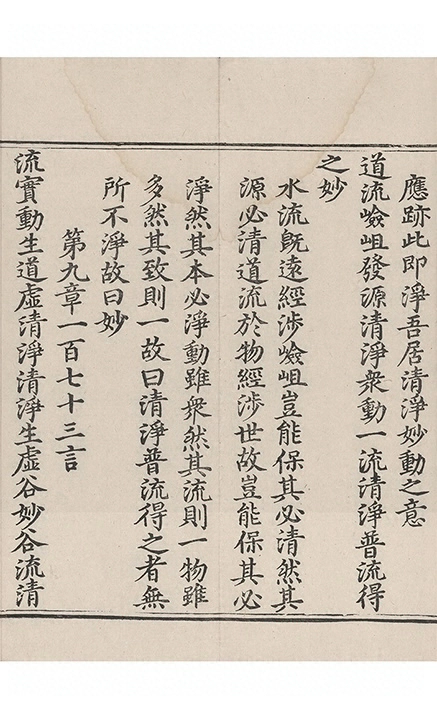 應跡此即淨吾居清淨妙動之意
道流嶮岨發源清淨衆動一流清淨普流得
之妙
水流旣遠經涉嶮岨豈能保其必清然其
源必清道流於物經涉世故豈能保其必
淨然其本必淨動雖衆然其流則一物雖
多然其致則一故曰清淨普流得之者無
所不淨故曰妙
第九章一百七十三言
流實動生道虛清淨清淨生虛谷妙谷流清